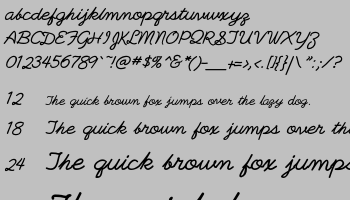 abcdefghijklmnopqrstuvwxyz
ABCDEFGHIJKLMNOPQRSTUVWXYZ
0123456789`~!@#$%^&*()-_=+>,<.[]{}|\":;/?
12 The quick brown fox jumps over the lazy dog.
18 The quick brown fox jumps over the
24 The quick brown fox jumps